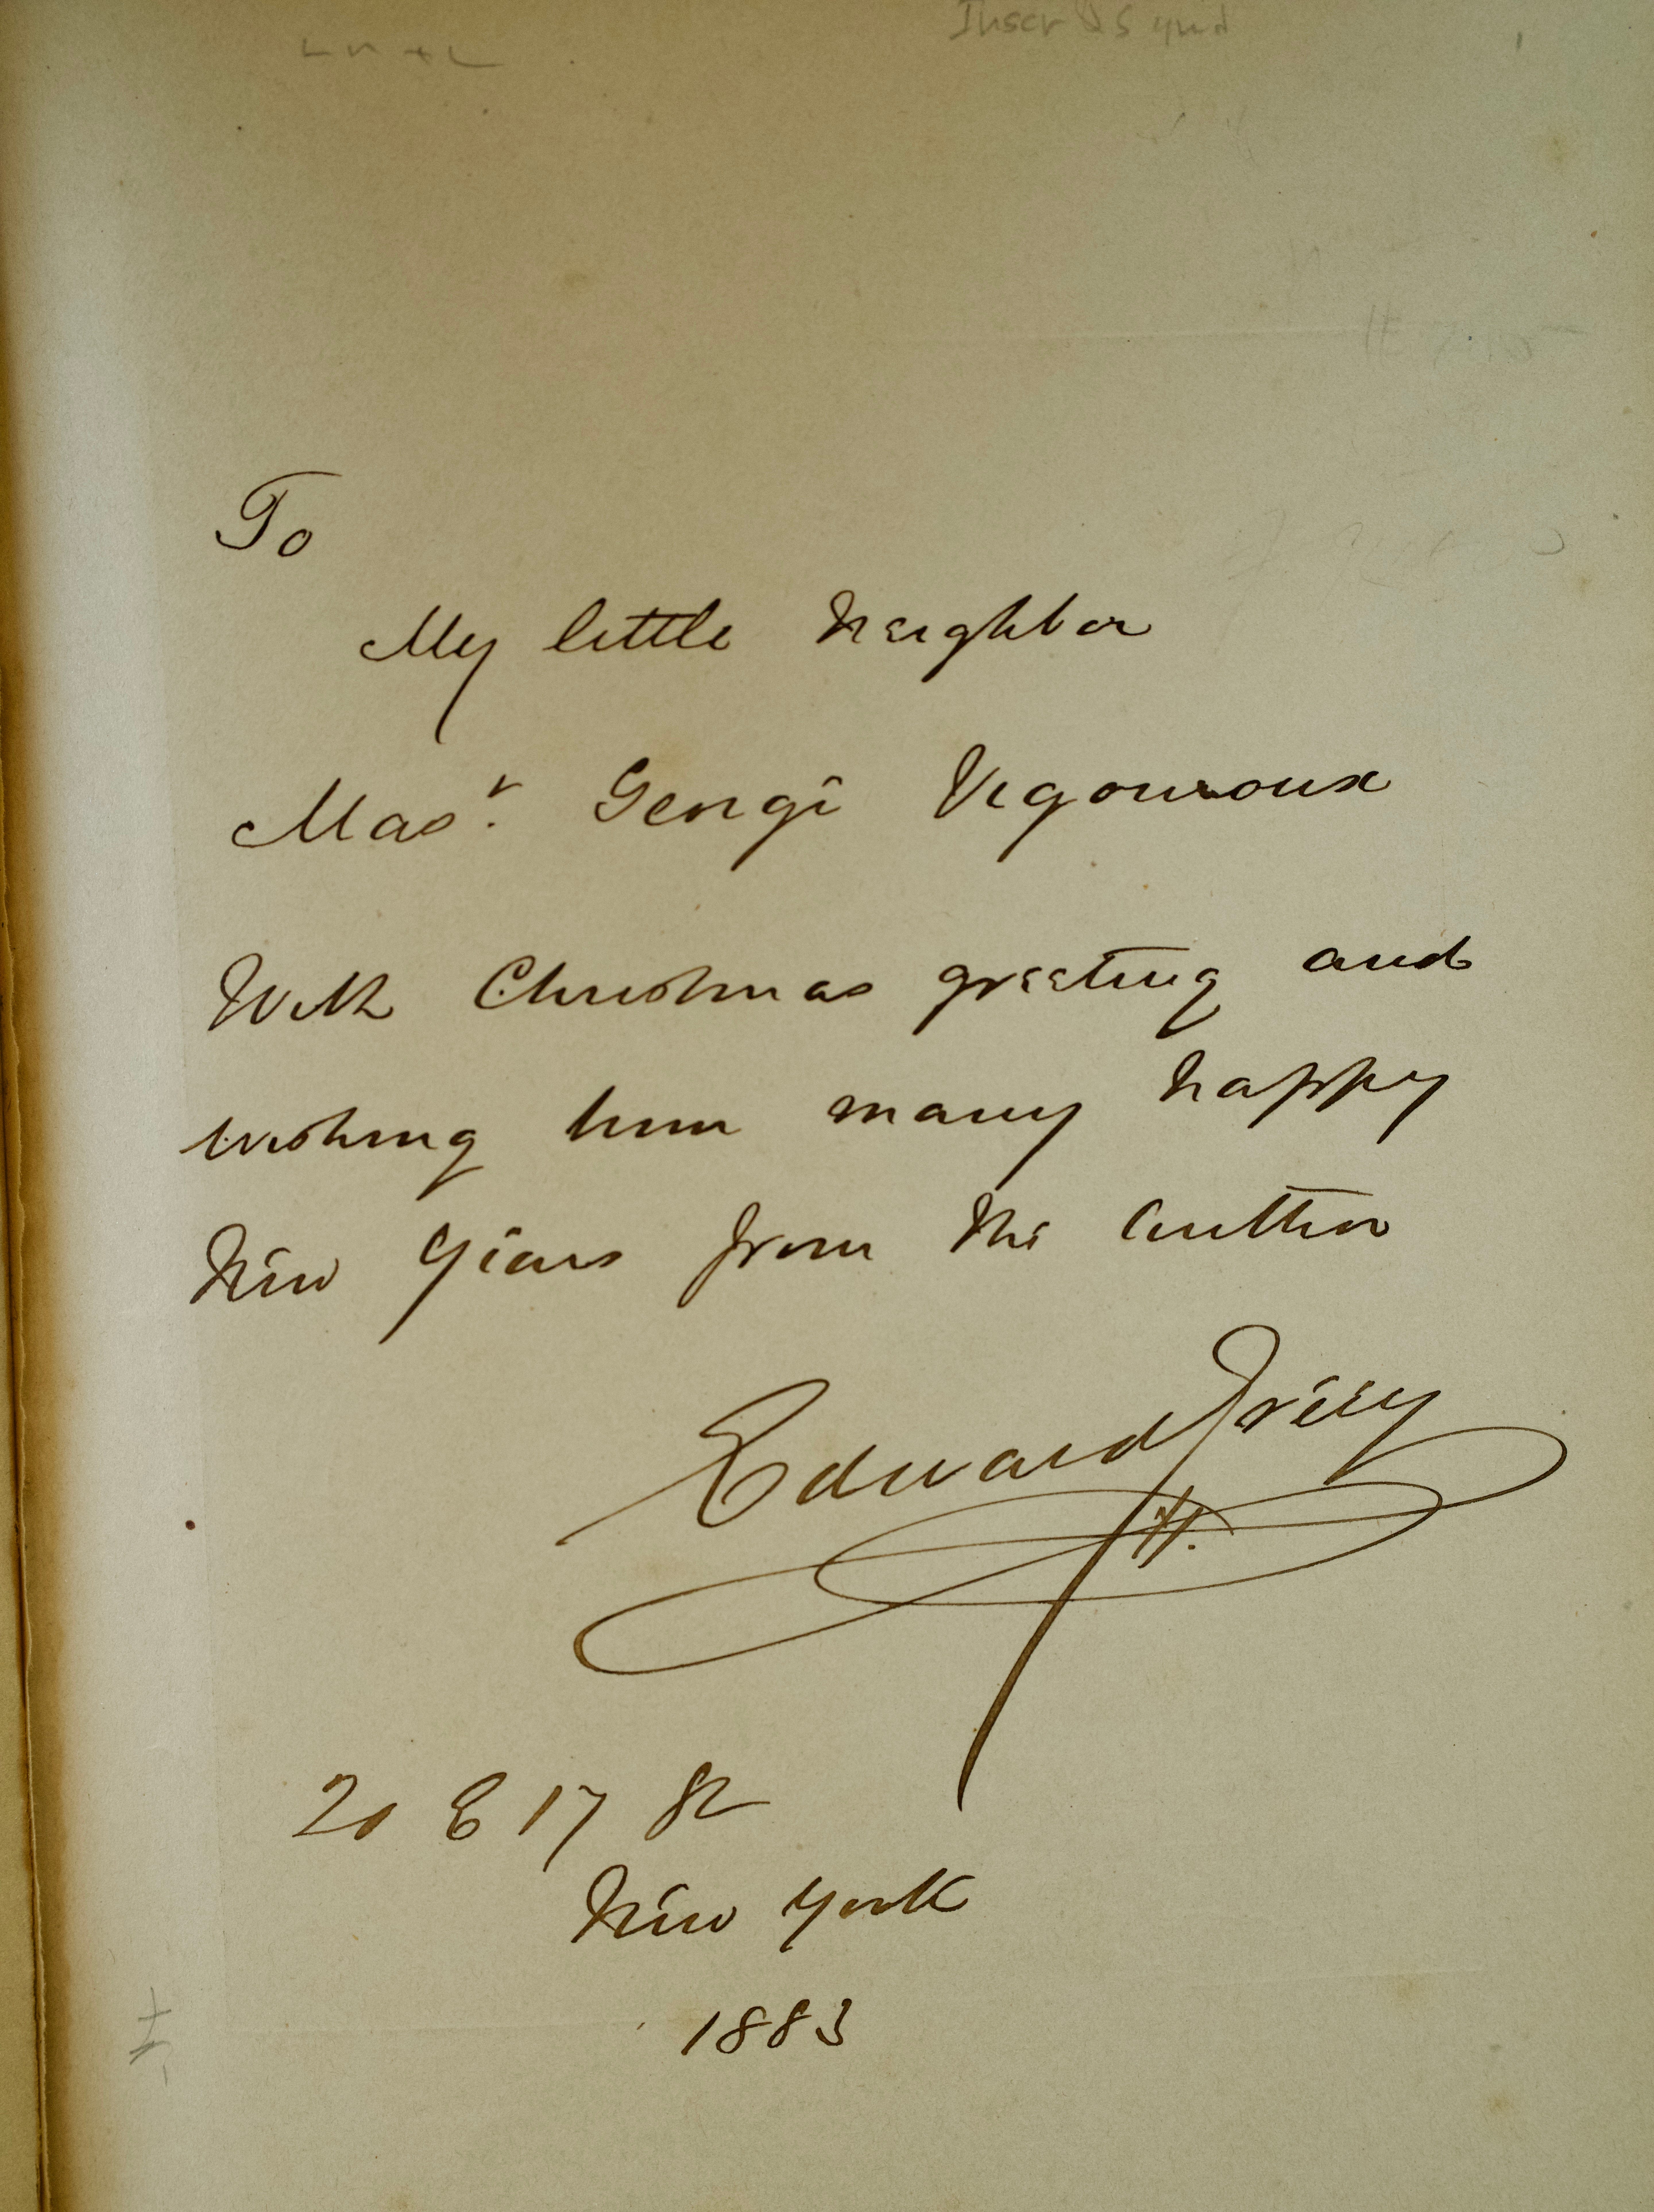 Inscr & Signd
To
My little Neighbor
Mas.r George Vigouroux
With Christmas greeting and
wishing him many happy
New Years from the Author
Edward Greey
20 E 17 St
New York
1883